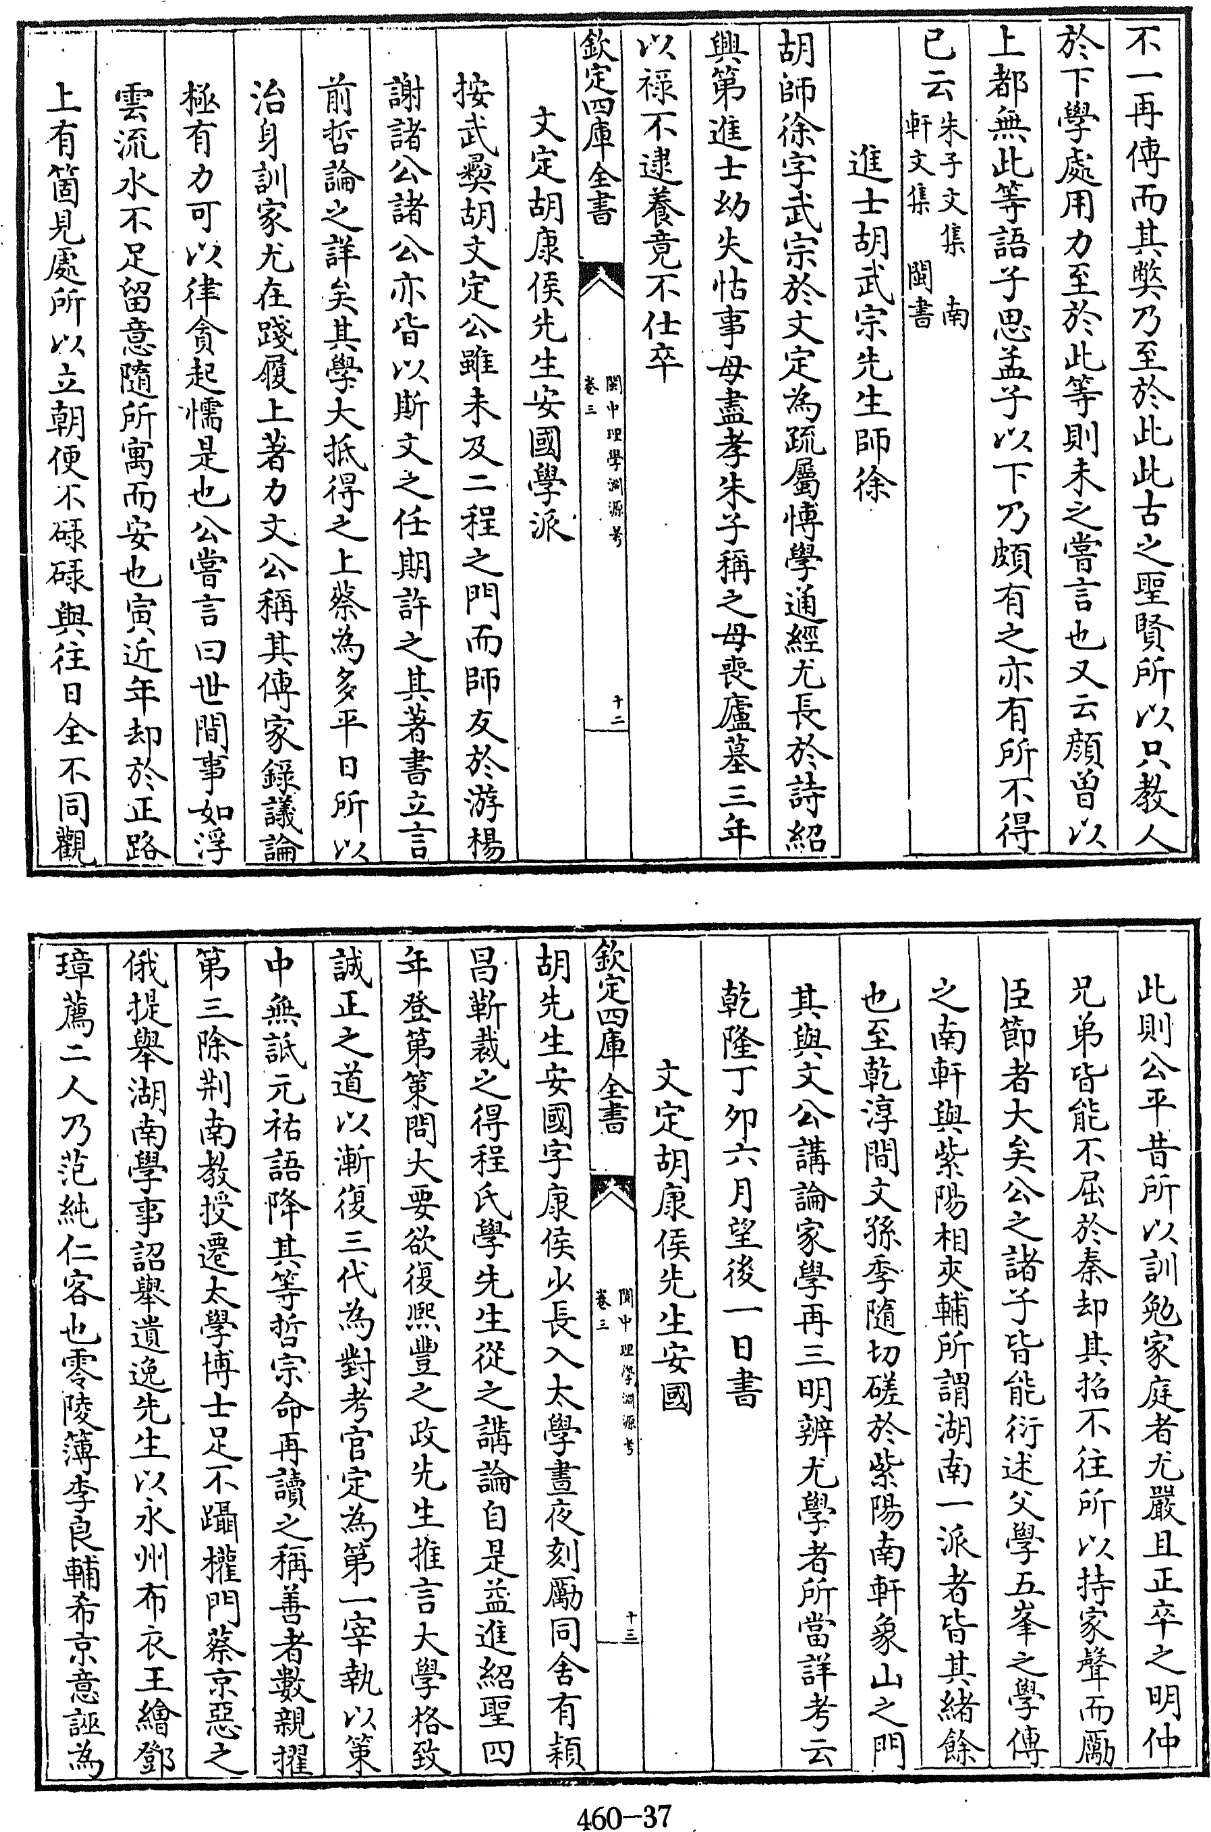 不一再傳而其弊乃至於此此古之聖賢所以只教人
於下學處用力至於此等則未之嘗言也又云顔曾以
上都無此等語子思孟子以下乃頗有之亦有所不得
已云朱子文集 南
軒文集 閩書
進士胡武宗先生師徐
胡師徐字武宗於文定為疏屬博學通經尤長於詩紹
興第進士幼失怙事母盡孝朱子稱之母喪廬墓三年
以禄不逮養竟不仕卒
欽定四庫全書
閩中理學淵源考
卷三
十二
文定胡康侯先生安國學派
按武夷胡文定公雖未及二程之門而師友於游楊
謝諸公諸公亦皆以斯文之任期許之其著書立言
前哲論之詳矣其學大抵得之上蔡為多平日所以
治身訓家尤在踐履上著力文公稱其傳家録議論
極有力可以律貪起懦是也公嘗言曰世間事如浮
雲流水不足留意隨所寓而安也寅近年却於正路
上有箇見處所以立朝便不碌碌與往日全不同觀
此則公平昔所以訓勉家庭者尤嚴且正卒之明仲
兄弟皆能不屈於秦却其招不往所以持家聲而勵
臣節者大矣公之諸子皆能衍述父學五峯之學傳
之南軒與紫陽相夾輔所謂湖南一派者皆其緒餘
也至乾淳間文孫季隨切磋於紫陽南軒象山之門
其與文公講論家學再三明辨尤學者所當詳考云
乾隆丁卯六月望後一日書
文定胡康侯先生安國
欽定四庫全書
閩中理學淵源考
卷三
十三
胡先生安國字康侯少長入太學晝夜刻勵同舍有潁
昌靳裁之得程氏學先生從之講論自是益進紹聖四
年登第策問大要欲復熙豐之政先生推言大學格致
誠正之道以漸復三代為對考官定為第一宰執以策
中無詆元祐語降其等哲宗命再讀之稱善者數親擢
第三除荆南教授遷太學博士足不躡權門蔡京惡之
俄提舉湖南學事詔舉遺逸先生以永州布衣王繪鄧
璋薦二人乃范純仁客也零陵簿李良輔希京意誣為
460-37